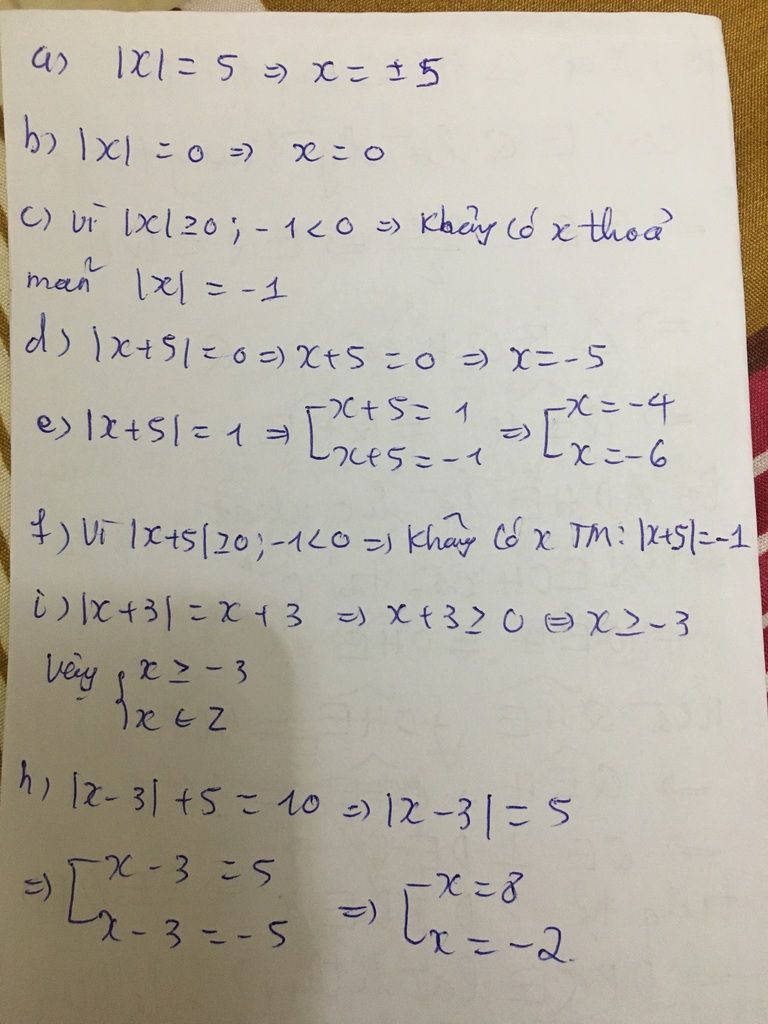 a) |x| = 5 => x = ± 5
b) |x| = 0 => x = 0
c) Vì |x| ≥ 0 ; - 1 < 0 => Không có x thoả
mãn |x| = - 1
d) |x+5| = 0 => x+5 = 0 => x = - 5
e) |x+5| = 1 => [ x+5 = 1 => [ x = -4
x+5 = -1 x = -6
f) Vì |x+5| ≥ 0 ; -1 < 0 => Không có x TM: |x+5| = -1
i) |x+3| = x + 3 => x + 3 ≥ 0 <=> x ≥ - 3
Vậy { x ≥ - 3
x ∈ Z
h) |x-3| + 5 = 10 => |x - 3| = 5
=> [ x - 3 = 5 => [ x = 8
x - 3 = - 5 x = - 2.